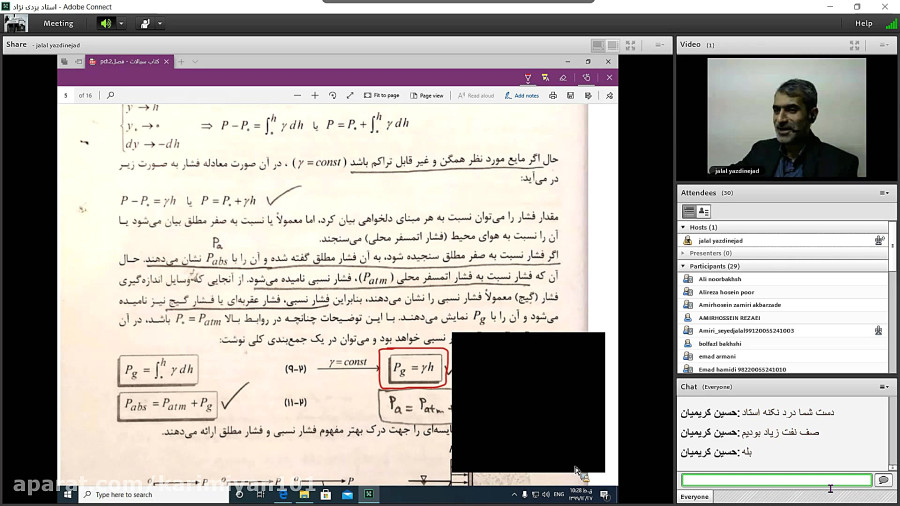 استاد یزدی نژاد - Adobe Connect
Meeting
Help
Share - jalal yazdinejad
کتاب سیالات - فصل2.pdf
3 of 16
Fit to page
Page view
Read aloud
Add notes
y → h
y₀ → 0
dy → −dh
⇒ P − P₀ = ∫₀ʰ γ dh یا P = P₀ + ∫₀ʰ γ dh
حال اگر مایع مورد نظر همگن و غیر قابل تراکم باشد (γ = const) ، در آن صورت معادله فشار به صورت زیر
در می‌آید:
P − P₀ = γh یا P = P₀ + γh
مقدار فشار را می‌توان نسبت به هر مبنای دلخواهی بیان کرد، اما معمولاً یا نسبت به صفر مطلق بیان می‌شود یا
آن را نسبت به هوای محیط (فشار اتمسفر محلی) می‌سنجند.
Pa
اگر فشار نسبت به صفر مطلق سنجیده شود، به آن فشار مطلق گفته شده و آن را با Pabs نشان می‌دهند. حال
آن که فشار نسبت به فشار اتمسفر محلی (Patm)، فشار نسبی نامیده می‌شود. از آنجایی که وسایل اندازه‌گیری
فشار (گیج) معمولاً فشار نسبی را نشان می‌دهند، بنابراین فشار نسبی، فشار عقربه‌ای یا فشار گیج نیز نامیده
می‌شود و آن را با Pg نمایش می‌دهند. با این توضیحات چنانچه در روابط بالا P₀ = Patm باشد، در آن
نسبی خواهد بود و می‌توان در یک جمع‌بندی کلی نوشت:
Pg = ∫₀ʰ γ dh
(۹-۲)
γ = const
Pg = γh
Pabs = Patm + Pg
(۱۱-۲)
Pa = Patm +
ایسه‌ای را جهت درک بهتر مفهوم فشار نسبی و فشار مطلق ارائه می‌دهند.
Type here to search
ENG
10:28 ق.ظ
Video (1)
jalal yazdinejad
Attendees (30)
Hosts (1)
jalal yazdinejad
Presenters (0)
Participants (29)
Ali noorbakhsh
Alireza hosein poor
Amirhosein zamiri akbarzade
AMIRHOSSEIN REZAEI
Amiri_seyedjalal99120055241003
bolfazl bakhshi
emad armani
Emad hamidi 98220055241010
Chat (Everyone)
حسین کریمیان: دست شما درد نکنه استاد
حسین کریمیان: صف نفت زیاد بودیم
حسین کریمیان: بله
Everyone
aparat.com/karimiyan101